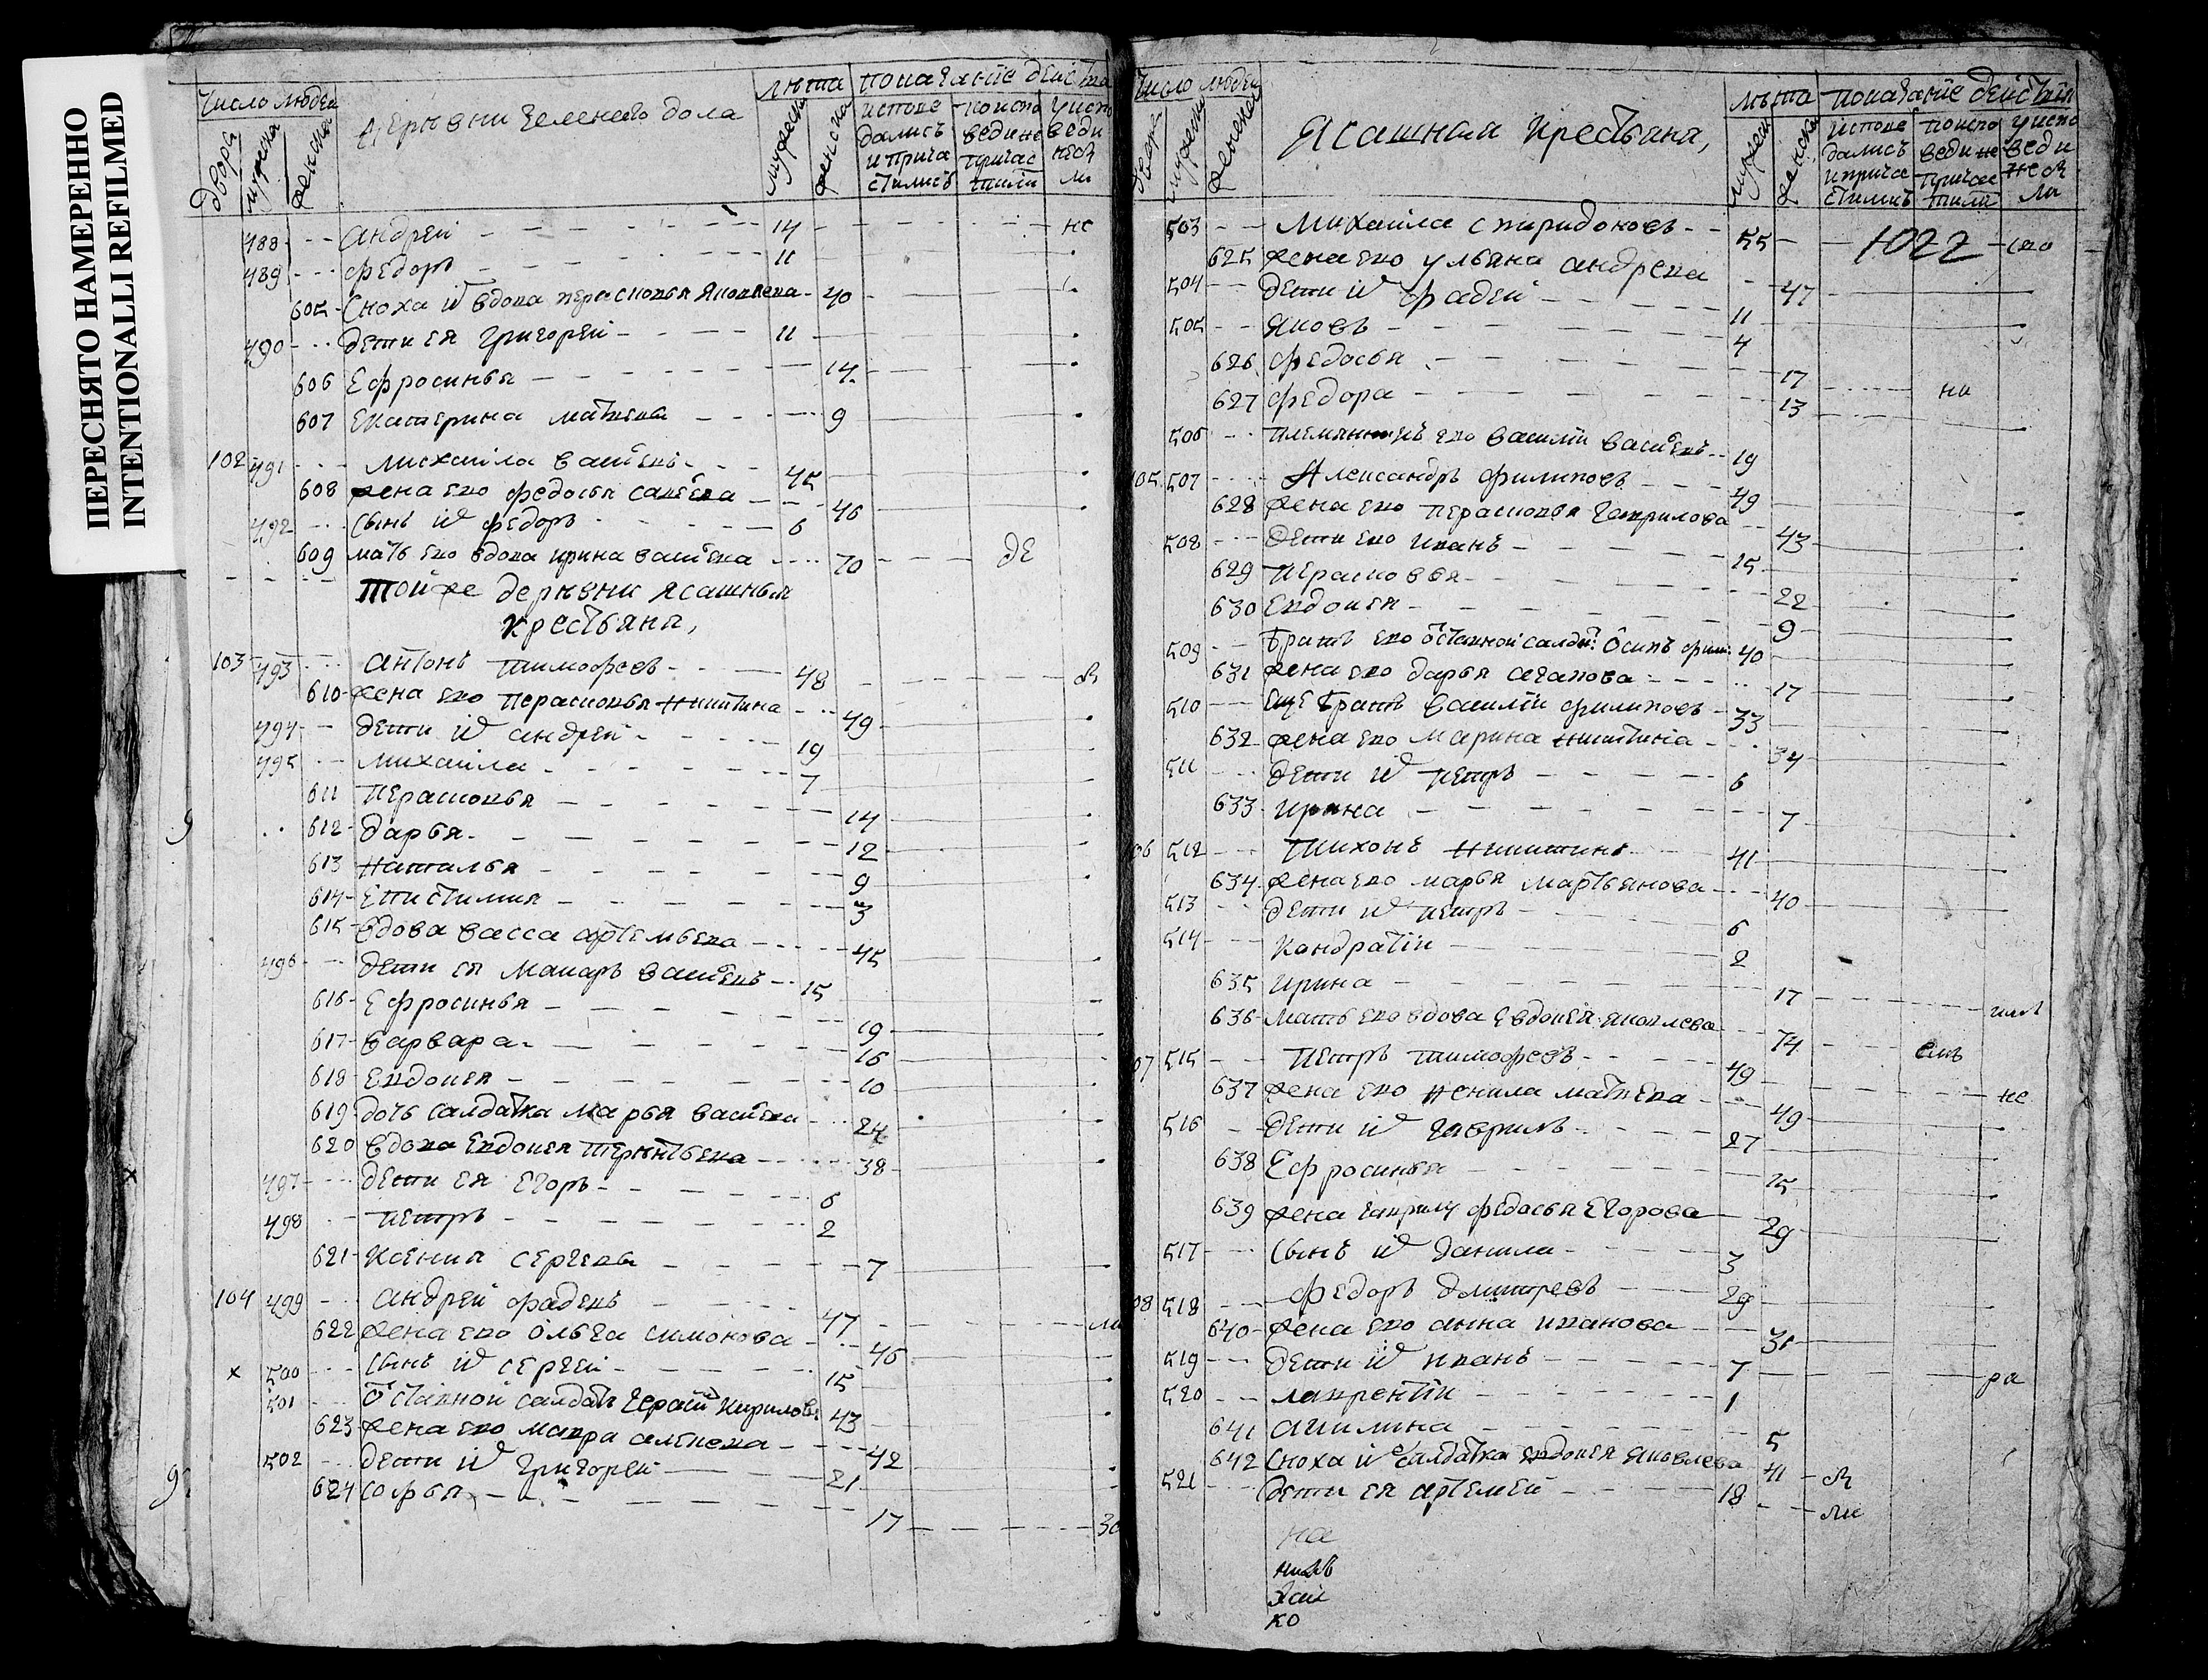 ПЕРЕСНЯТО НАМЕРЕННО
INTENTIONALLI REFILMED
Число людеи
Двора
мужеска
женска
Деревни Зеленего дола
лѣта
мужеска
женска
показание деиства
испове
дались
и прича
стились
по испо
веди не
причас
тили
у испо
веди
небы
ли
488 Андреи 14 не
489 Федоръ 11
605 Сноха иѡ вдова Перасковья Яковлева 40
490 Дети ея Григореи 11
606 Ефросинья 14
607 Екатерина Матвева 9
102 491 Михаила Василевъ 45
608 жена ево Федосья Савелева 46
492 Сынъ иѡ Федоръ 6
609 мать ево вдова Ирина Василева 70 де
Тойже деревни Ясашныя
крестьяня,
103 493 Антонъ Тимофеевъ 48 бы
610 жена ево Перасковья Никитина 49
494 Дети иѡ Андреи 19
495 Михаила 7
611 Перасковья 14
612 Дарья 12
613 Наталья 9
614 Епистимия 3
615 Вдова Васса Артемьева 45
496 Дети ея Макаръ Василевъ 15
616 Ефросинья 19
617 Варвара 16
618 Евдокея 10
619 Дочь салдатка Марья Василева 24
620 Вдова Евдокея Терентьева 38
497 Дети ея Егоръ 6
498 Петръ 2
621 Ксения Сергеева 7
104 499 Андреи Фадеевъ 47 ли
622 жена ево Ольга Симонова 46
х 500 Сынъ иѡ Сергеи 15
501 Отставной салдатъ Герасимъ Кириловъ 43
623 жена ево Мавра Алексеева 42
502 Дети иѡ Григореи 21
624 Софья 17 за
Число людеи
Двора
мужеска
женска
Ясашныя крестьяня,
лѣта
мужеска
женска
показание деиствия
испове
дались
и прича
стились
по испо
веди не
причас
тили
у испо
веди
небы
ли
503 Михаила Спиридоновъ 55 1022 сво
625 жена ево Ульяна Андреева 47
504 Дети иѡ Фадеи 11
505 Яковъ 4
626 Федосья 17 на
627 Федора 13
506 племянникъ ево Василии Василевъ 19
105 507 Александръ Филиповъ 49
628 жена ево Перасковья Гаврилова 43
508 Дети ево Иванъ 15
629 Перасковья 22
630 Евдокея 9
509 Братъ ево отставной салдатъ Осипъ Фили: 40
631 жена ево Дарья Агапова 17
510 Еще братъ Василии Филиповъ 33
632 жена ево Марина Никитина 34
511 Дети иѡ Петръ 6
633 Ирина 7
106 512 Тихонъ Никитинъ 41
634 жена ево Марья Мартьянова 40
513 Дети иѡ Петръ 6
514 Кондратии 2
635 Ирина 17
636 Мать ево вдова Евдокея Яковлева 74 емъ
107 515 Петръ Тимофеевъ 49
637 жена ево Ненила Матвеева 49 не
516 Дети иѡ Гаврилъ 27
638 Ефросинья 15
639 жена Гаврилу Федосья Егорова 29
517 Сынъ иѡ Данила 3
108 518 Федоръ Дмитреевъ 29
640 жена ево Анна Иванова 31
519 Дети иѡ Иванъ 7 ра
520 Лаврентии 1
641 Акилина 5
642 Сноха иѡ салдатка Евдокея Яковлева 41 бы
521 Дети ея Артемеи 18 ли
на
ко